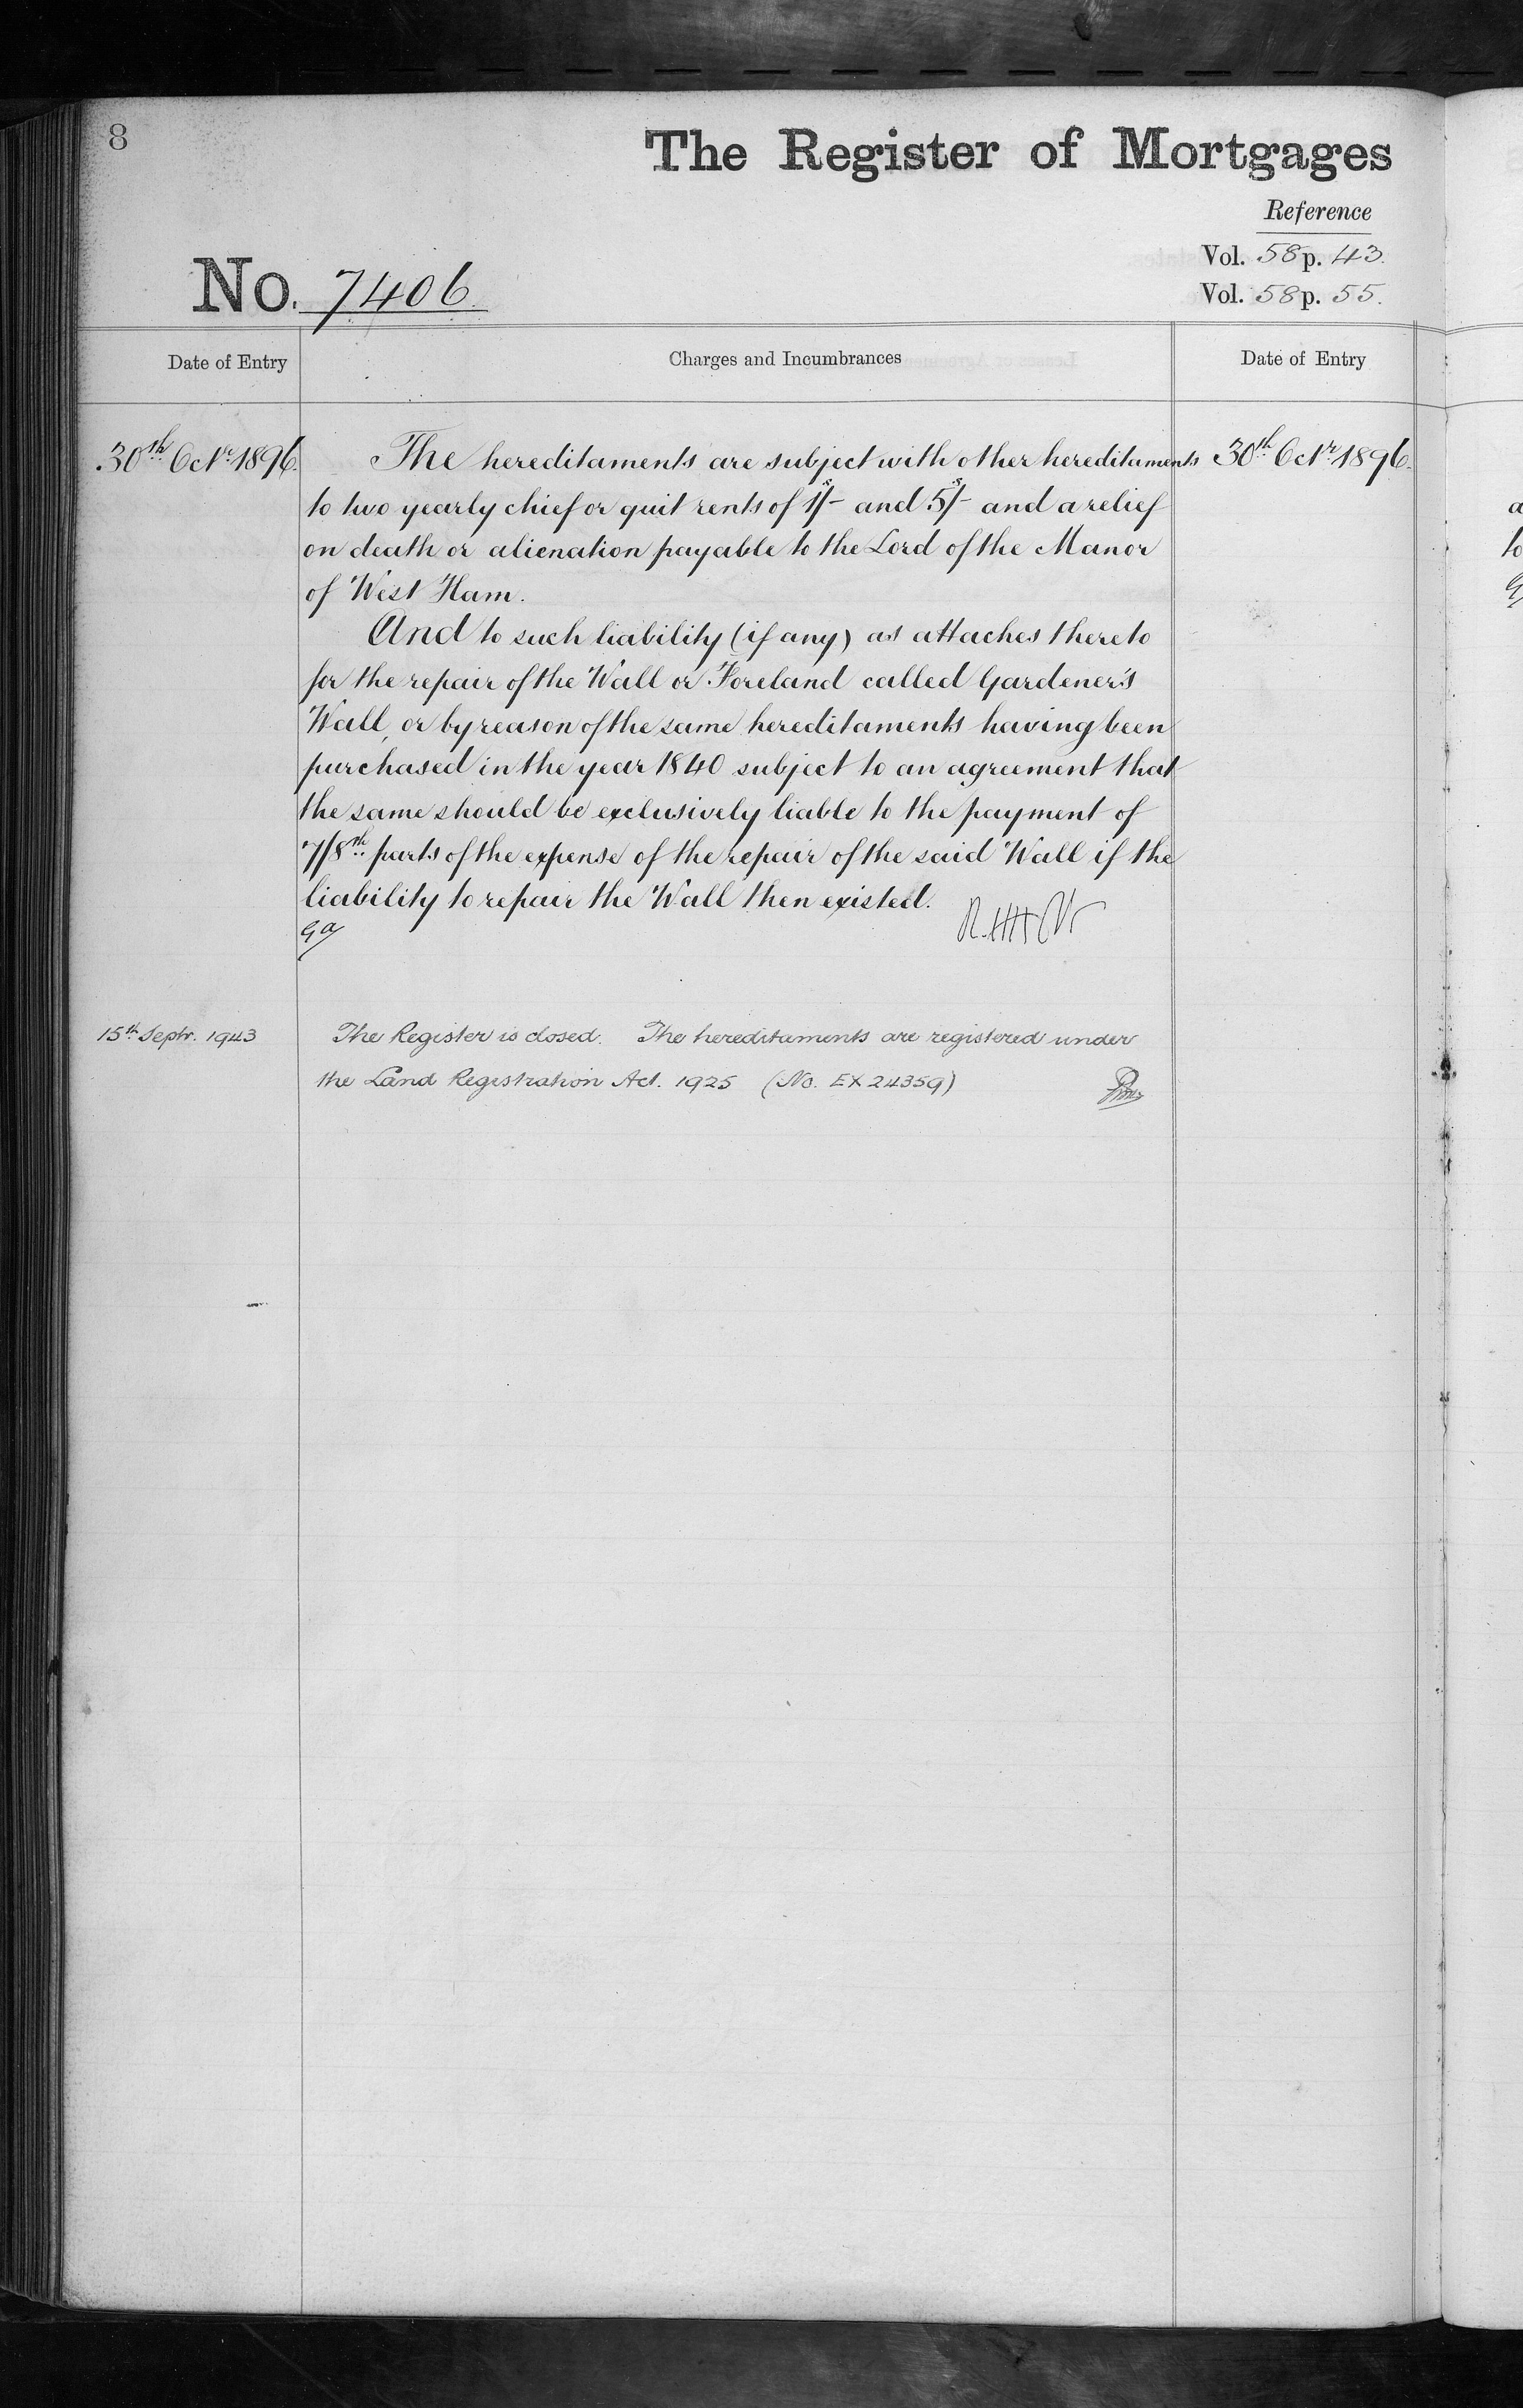 8
The Register of Mortgages
Reference
Vol. 58 p. 43.
Vol. 58 p. 55.
No. 7406
Date of Entry
Charges and Incumbrances
Date of Entry
30th Octr. 1896.
The hereditaments are subject with other hereditaments
30th Octr. 1896.
to two yearly chief or quit rents of 1s/- and 5s/- and a relief
on death or alienation payable to the Lord of the Manor
of West Ham.
And to such liability (if any) as attaches thereto
for the repair of the Wall or Foreland called Gardener's
Wall, or by reason of the same hereditaments having been
purchased in the year 1840 subject to an agreement that
the same should be exclusively liable to the payment of
7/8th. parts of the expense of the repair of the said Wall if the
liability to repair the Wall then existed.
15th Septr. 1943
The Register is closed. The hereditaments are registered under
the Land Registration Act. 1925 (No. EX 24359)